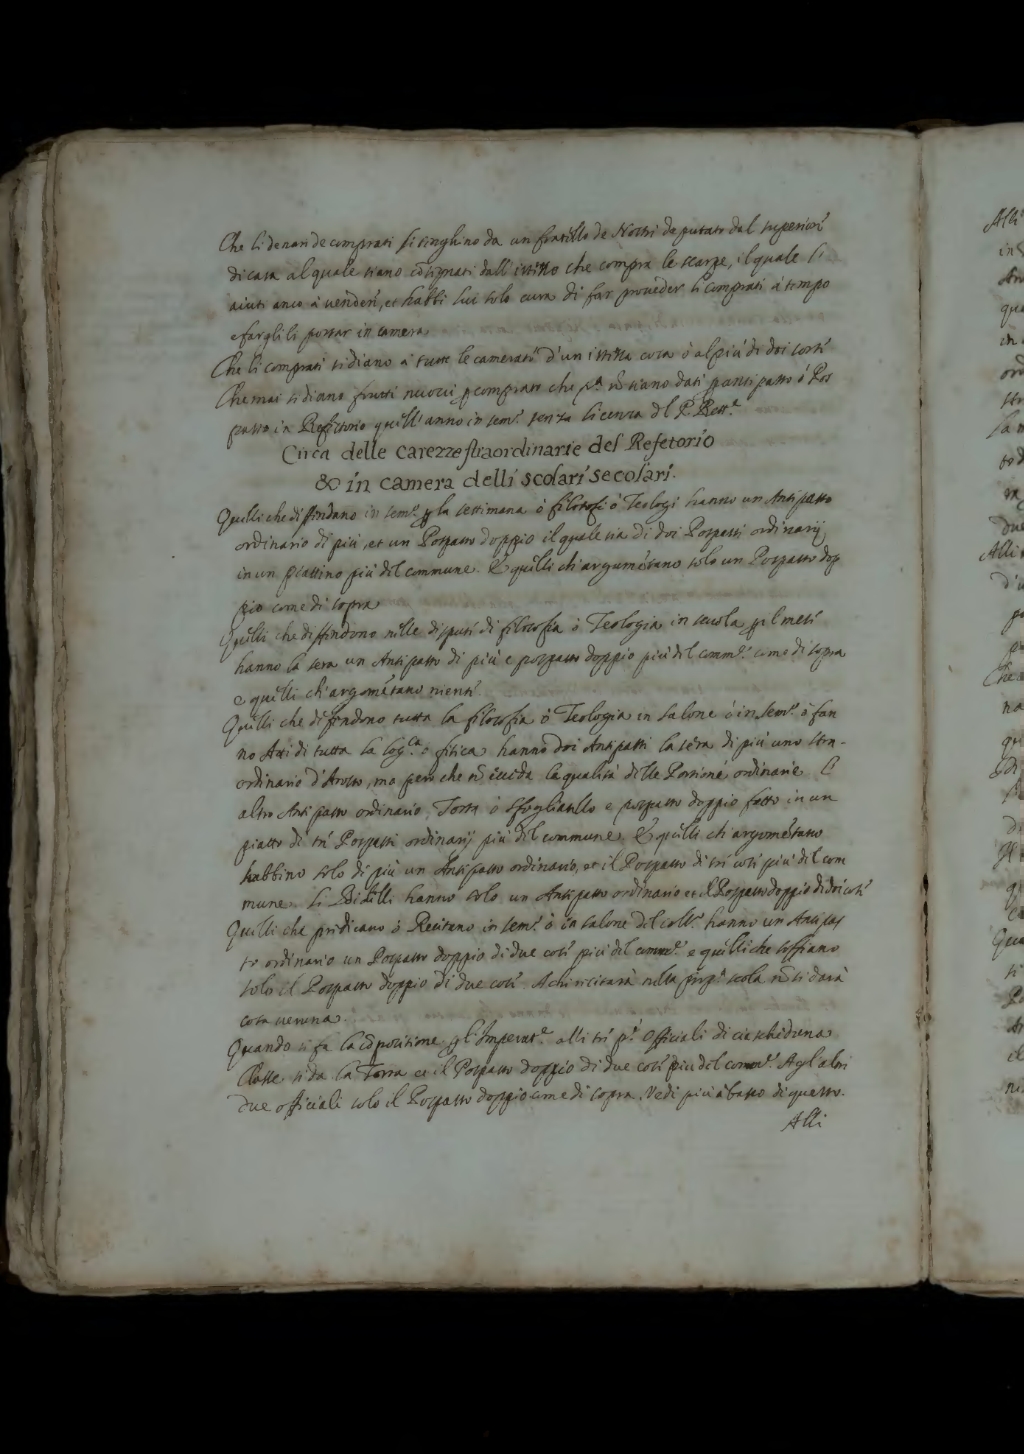 Che li denari de comprati si tenghino da un fratello de Nostri deputato dal superiore
di casa al quale siano cōsegnati dall' istesso che compra le scarpe, il quale l'
aiuti anco à vender, et habbi lui solo cura di far proveder li comprati à tempo
e fargli li portar in camera.
Che li comprati si diano à tutte le camerate d'un istessa cosa ò al più di doi sorti
Che mai si diano frutti nuovi comprato che pa nō siano dati antipasto ò Pos
pasto in Refettorio quell' anno in sem.o senza licenza del P. Rett.e
Circa delle carezze straordinarie del Refetorio
& in camera delli scolari secolari.
Quelli che diffendano in sem.o la settimana ò filosofi ò Teologi hanno un Antipasto
ordinario di più, et un Pospasto doppio il quale sia di doi Pospasti ordinarij
in un piattino più del commune. E quelli ch' argumētano solo un Pospasto dop
pio come di sopra
Quelli che diffendono nelle dispute di filosofia ò Teologia in scuola il mese
hanno la sera un Antipasto di più e pospasto doppio più del comm.e come di sopra
e quelli ch' argomētano niente
Quelli che difendono tutta la filosofia ò Teologia in salone ò in sem.o ò fan
no Atti di tutta la log.ca ò fisica, hanno doi Antipasti la sera di più uno stra-
ordinario d'Arosto, ma però che nō ecceda la qualità delle Portioni ordinarie. l'
altro Antipasto ordinario, Torta ò sfogliatello e pospasto doppio fatto in un
piatto di tre Pospasti ordinarij più del commune. E quelli ch' argomētano
habbino solo di più un Antipasto ordinario, et il Pospasto di tre cose più del com
mune. Li Bidelli hanno solo un Antipasto ordinario et il Pospasto doppio di doi cose
Quelli che predicano ò Recitano in sem.o ò in salone del coll.o hanno un Antipas
to ordinario un Pospasto doppio di due cose più del comm.e e quelli che soffiano
solo il Pospasto doppio di due cose. A chi recitarà nella prop.a scola nō si darà
cosa veruna.
Quando si fa la cōpositione gl' Imperat.e alli tre p.i Officiali di ciascheduna
Classe si da la Torta et il Pospasto doppio di due cose più del comm.e Agl' altri
due officiali solo il Pospasto doppio come di sopra. Vedi più à basso di questo.
Alli